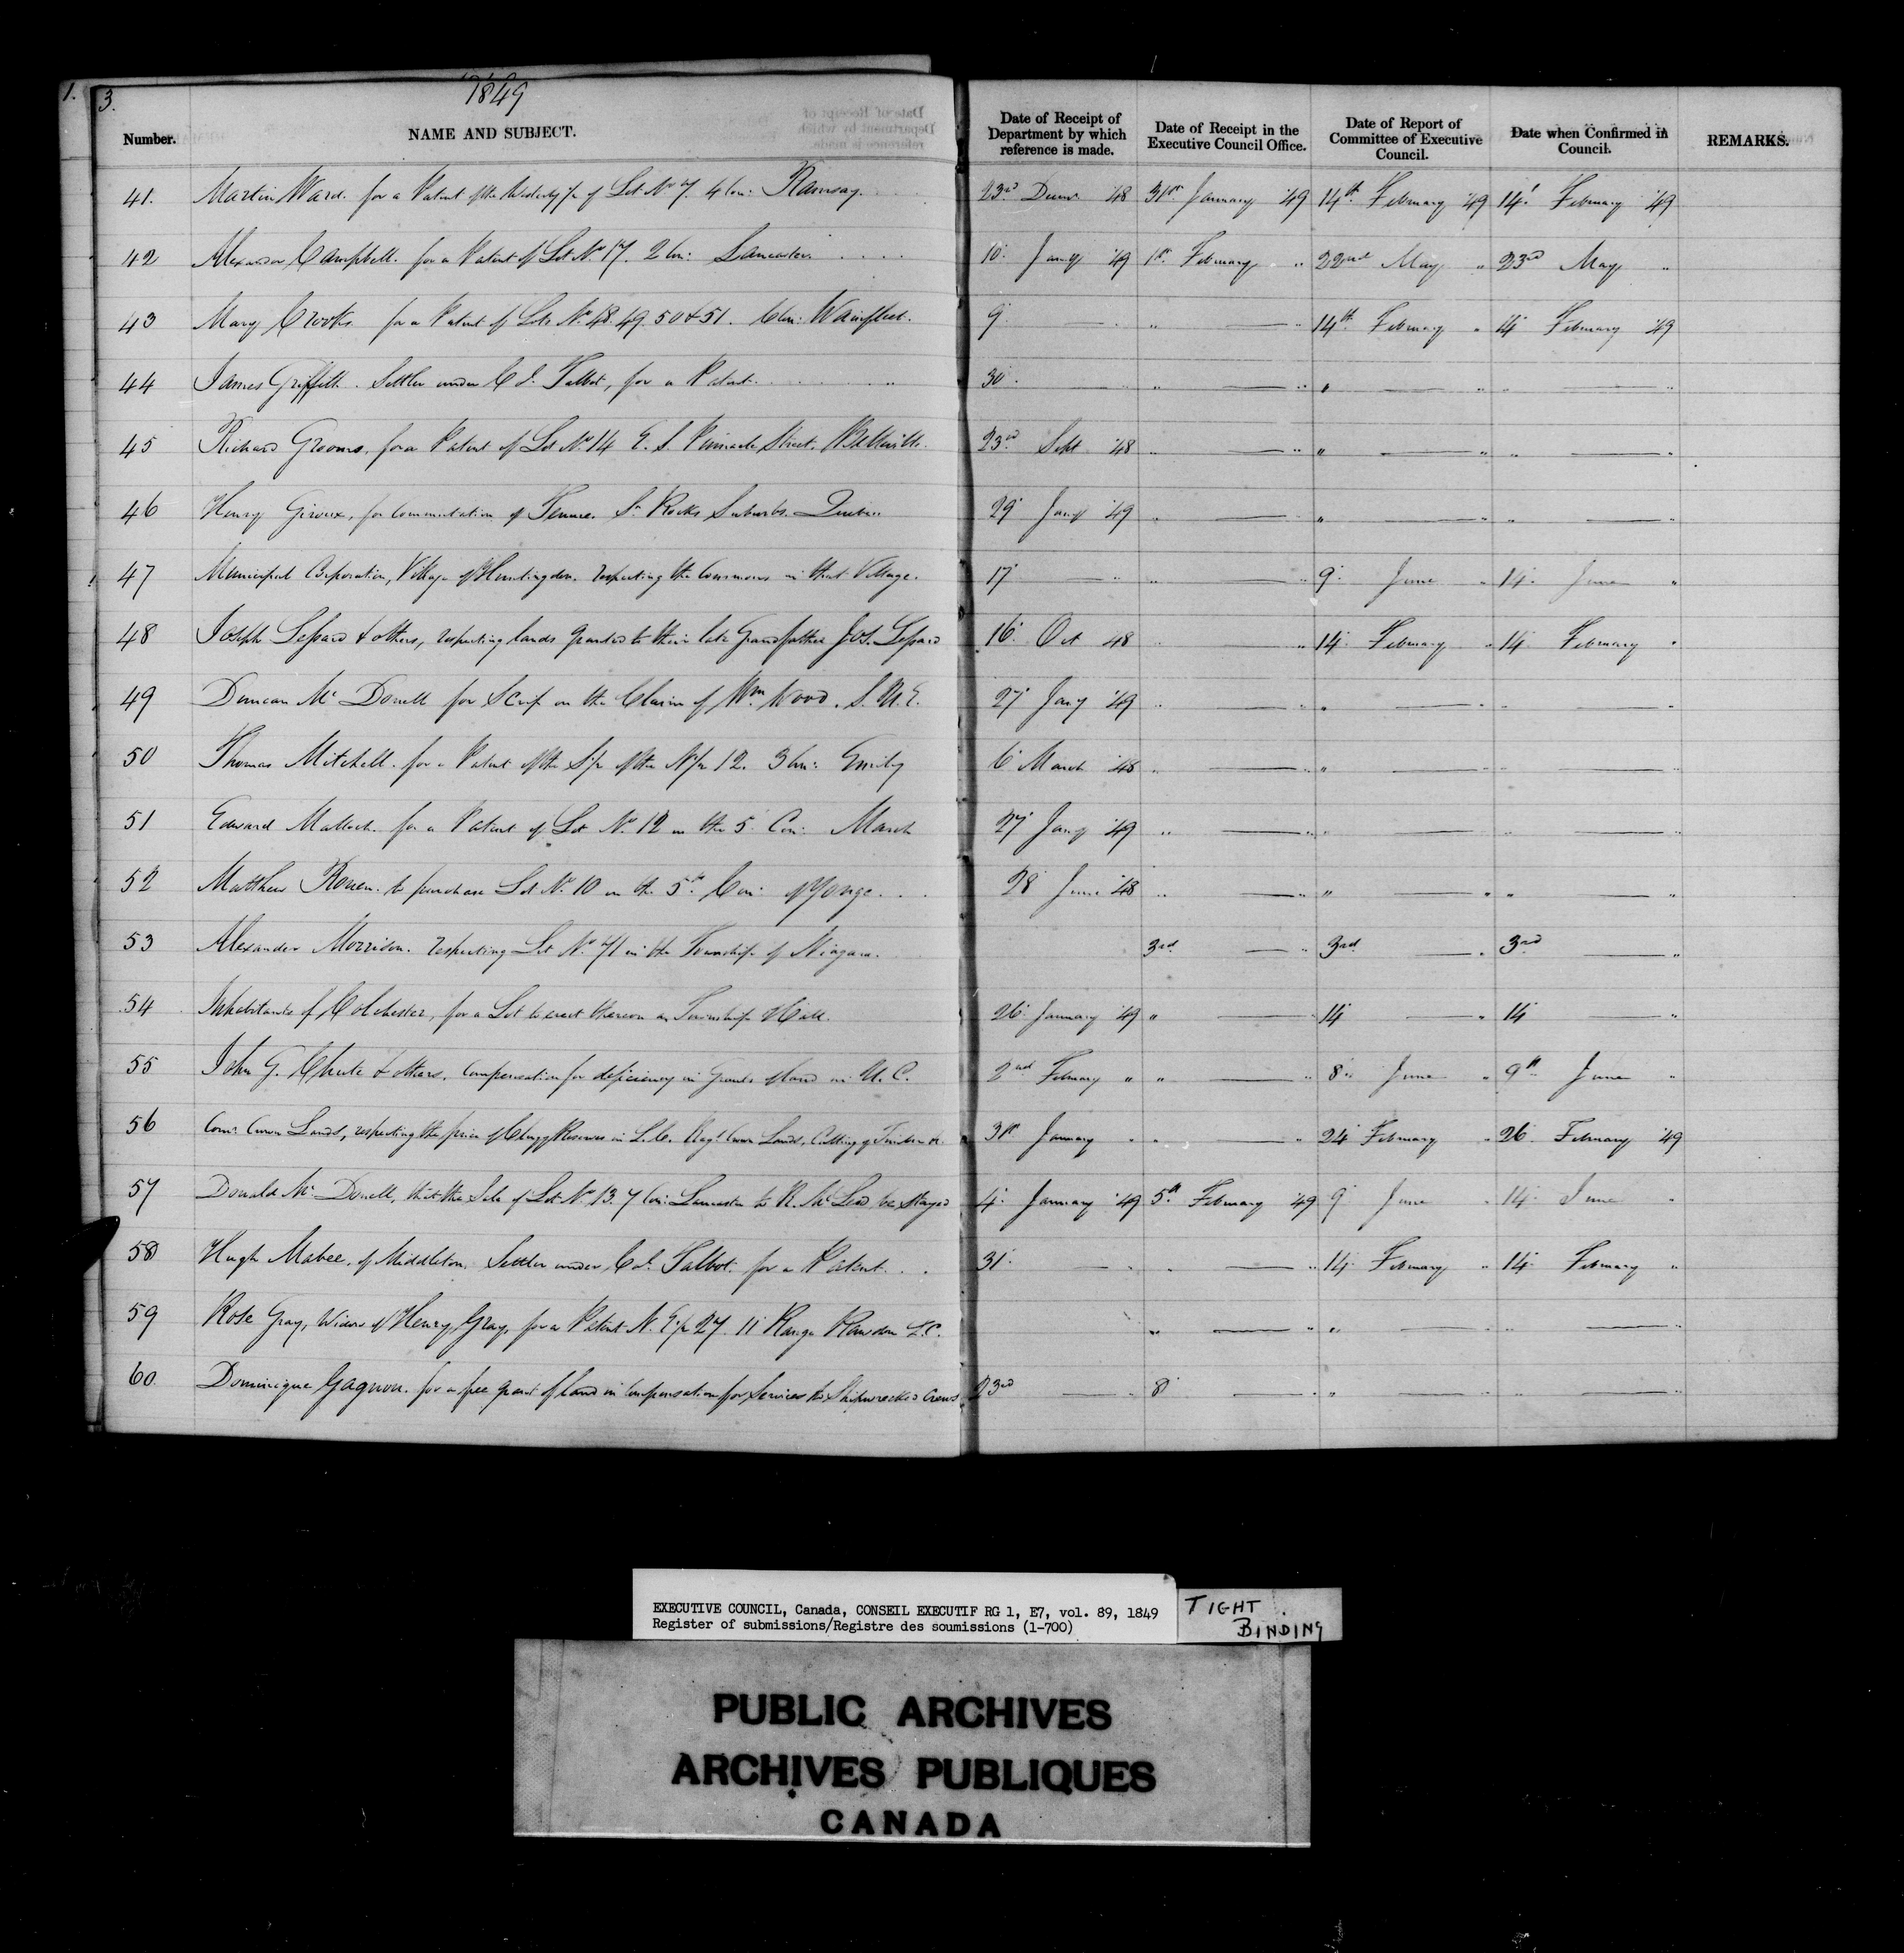 1.
3.
1849
Number. NAME AND SUBJECT. Date of Receipt of Department by which reference is made. Date of Receipt in the Executive Council Office. Date of Report of Committee of Executive Council. Date when Confirmed in Council. REMARKS.
41. Martin Ward. for a Patent of the Westerly 1/2 of Lot No 7. 4 Con: Ramsay. 23rd Decr '48 31st January '49 14th February '49 14' February '49
42 Alexander Campbell. for a Patent of Lot No 17. 2 Con: Lancaster. 10 Jany '49 1st February " 22nd May " 23rd May "
43 Mary Crooks for a Patent of Lots No 48. 49. 50 & 51. 6 Con: Wainfleet. 9 — " — " 14th February " 14 February '49
44 James Griffith. Settler under Col. Talbot, for a Patent. 30. — " — " " — " " — "
45 Richard Grooms, for a Patent of Lot No 14 E. S. Pinnacle Street. Belleville. 23rd Sept '48 " — " " — " " — "
46 Henry Giroux, for Commutation of Tenure. St Rocks Suburbs. Quebec 29 Jany '49 " — " " — " " — "
47 Municipal Corporation, Village of Huntingdon. respecting the Commons in that Village. 17 — " " — " 9 June " 14 June "
48 Joseph Lepard & others, respecting lands granted to their late Grandfather Jos. Lepard 16 Oct 48 " — " 14 February " 14 February "
49 Duncan Mc Donell for Scrip on the Claim of Wm Wood. S. U. E. 27 Jany '49 " — " " — " " — "
50 Thomas Mitchell. for a Patent of the S 1/2 of the N 1/2 12. 3 Con: Emily 6 March '48 " — " " — " " — "
51 Edward Malloch. for a Patent of Lot No. 12 in the 5 Con: March 27 Jany '49 " — " " — " " — "
52 Matthew Rouen. to purchase Lot No. 10 in the 5th Con: of Yonge. 28 June '48 " — " " — " " — "
53 Alexander Morrison. respecting Lot No 71 in the Township of Niagara. 3rd — " 3rd — " 3rd — "
54 Inhabitants of Colchester, for a Lot to erect thereon a Township Hall. 26 January '49 " — " 14 — " 14 — "
55 John G. Chute & others. Compensation for deficiency in Grants of land in U. C. 2nd February " " — " 8 June " 9th June "
56 Comr Crown Lands, respecting the price of Clergy Reserves in L. C. Regt Crown Lands, Cutting of Timber &c. 31st January " " — " 24 February " 26 February '49
57 Donald Mc Donell, that the Sale of Lot No 13. 7 Con: Lancaster to R. McLeod be stayed 4 January '49 5th February '49 9 June " 14 June "
58 Hugh Mabee, of Middleton, Settler under Col. Talbot. for a Patent. 31. — " " — " 14 February " 14 February "
59 Rose Gray, Widow of Henry Gray, for a Patent N. E 1/2 27. 11 Range Rawdon L.C. " — " " — " " — "
60. Dominique Gagnon. for a free grant of land in Compensation for Services to Shipwrecked Crews 23rd — " 8 — " " — " " — "
EXECUTIVE COUNCIL, Canada, CONSEIL EXECUTIF RG 1, E7, vol. 89, 1849
Register of submissions/Registre des soumissions (1-700)
TIGHT
BINDING
PUBLIC ARCHIVES
ARCHIVES PUBLIQUES
CANADA